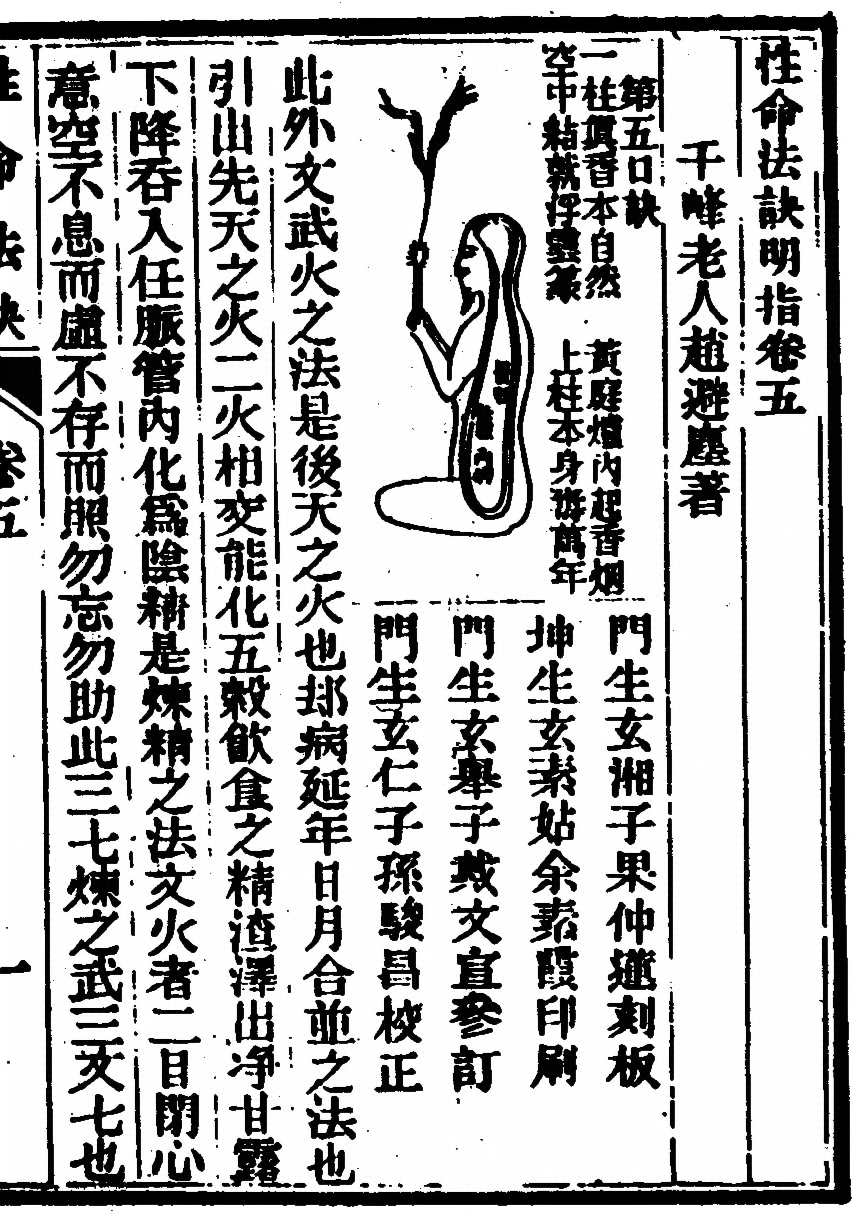 性命法訣明指卷五
千峰老人趙避塵著
第五口訣
一柱眞香本自然　黃庭爐內起香烟
空中結就浮雲篆　上柱本身壽萬年
門生玄湘子果仲蓮刻板
坤生玄素姑余素霞印刷
門生玄舉子戴文宣參訂
門生玄仁子孫駿昌校正
此外文武火之法是後天之火也却病延年日月合並之法也
引出先天之火二火相交能化五穀飮食之精渣澤出净甘露
下降吞入任脈管內化爲陰精是煉精之法文火者二目閉心
意空不息而虛不存而照勿忘勿助此三七煉之武三文七也
性命法訣
卷五
一